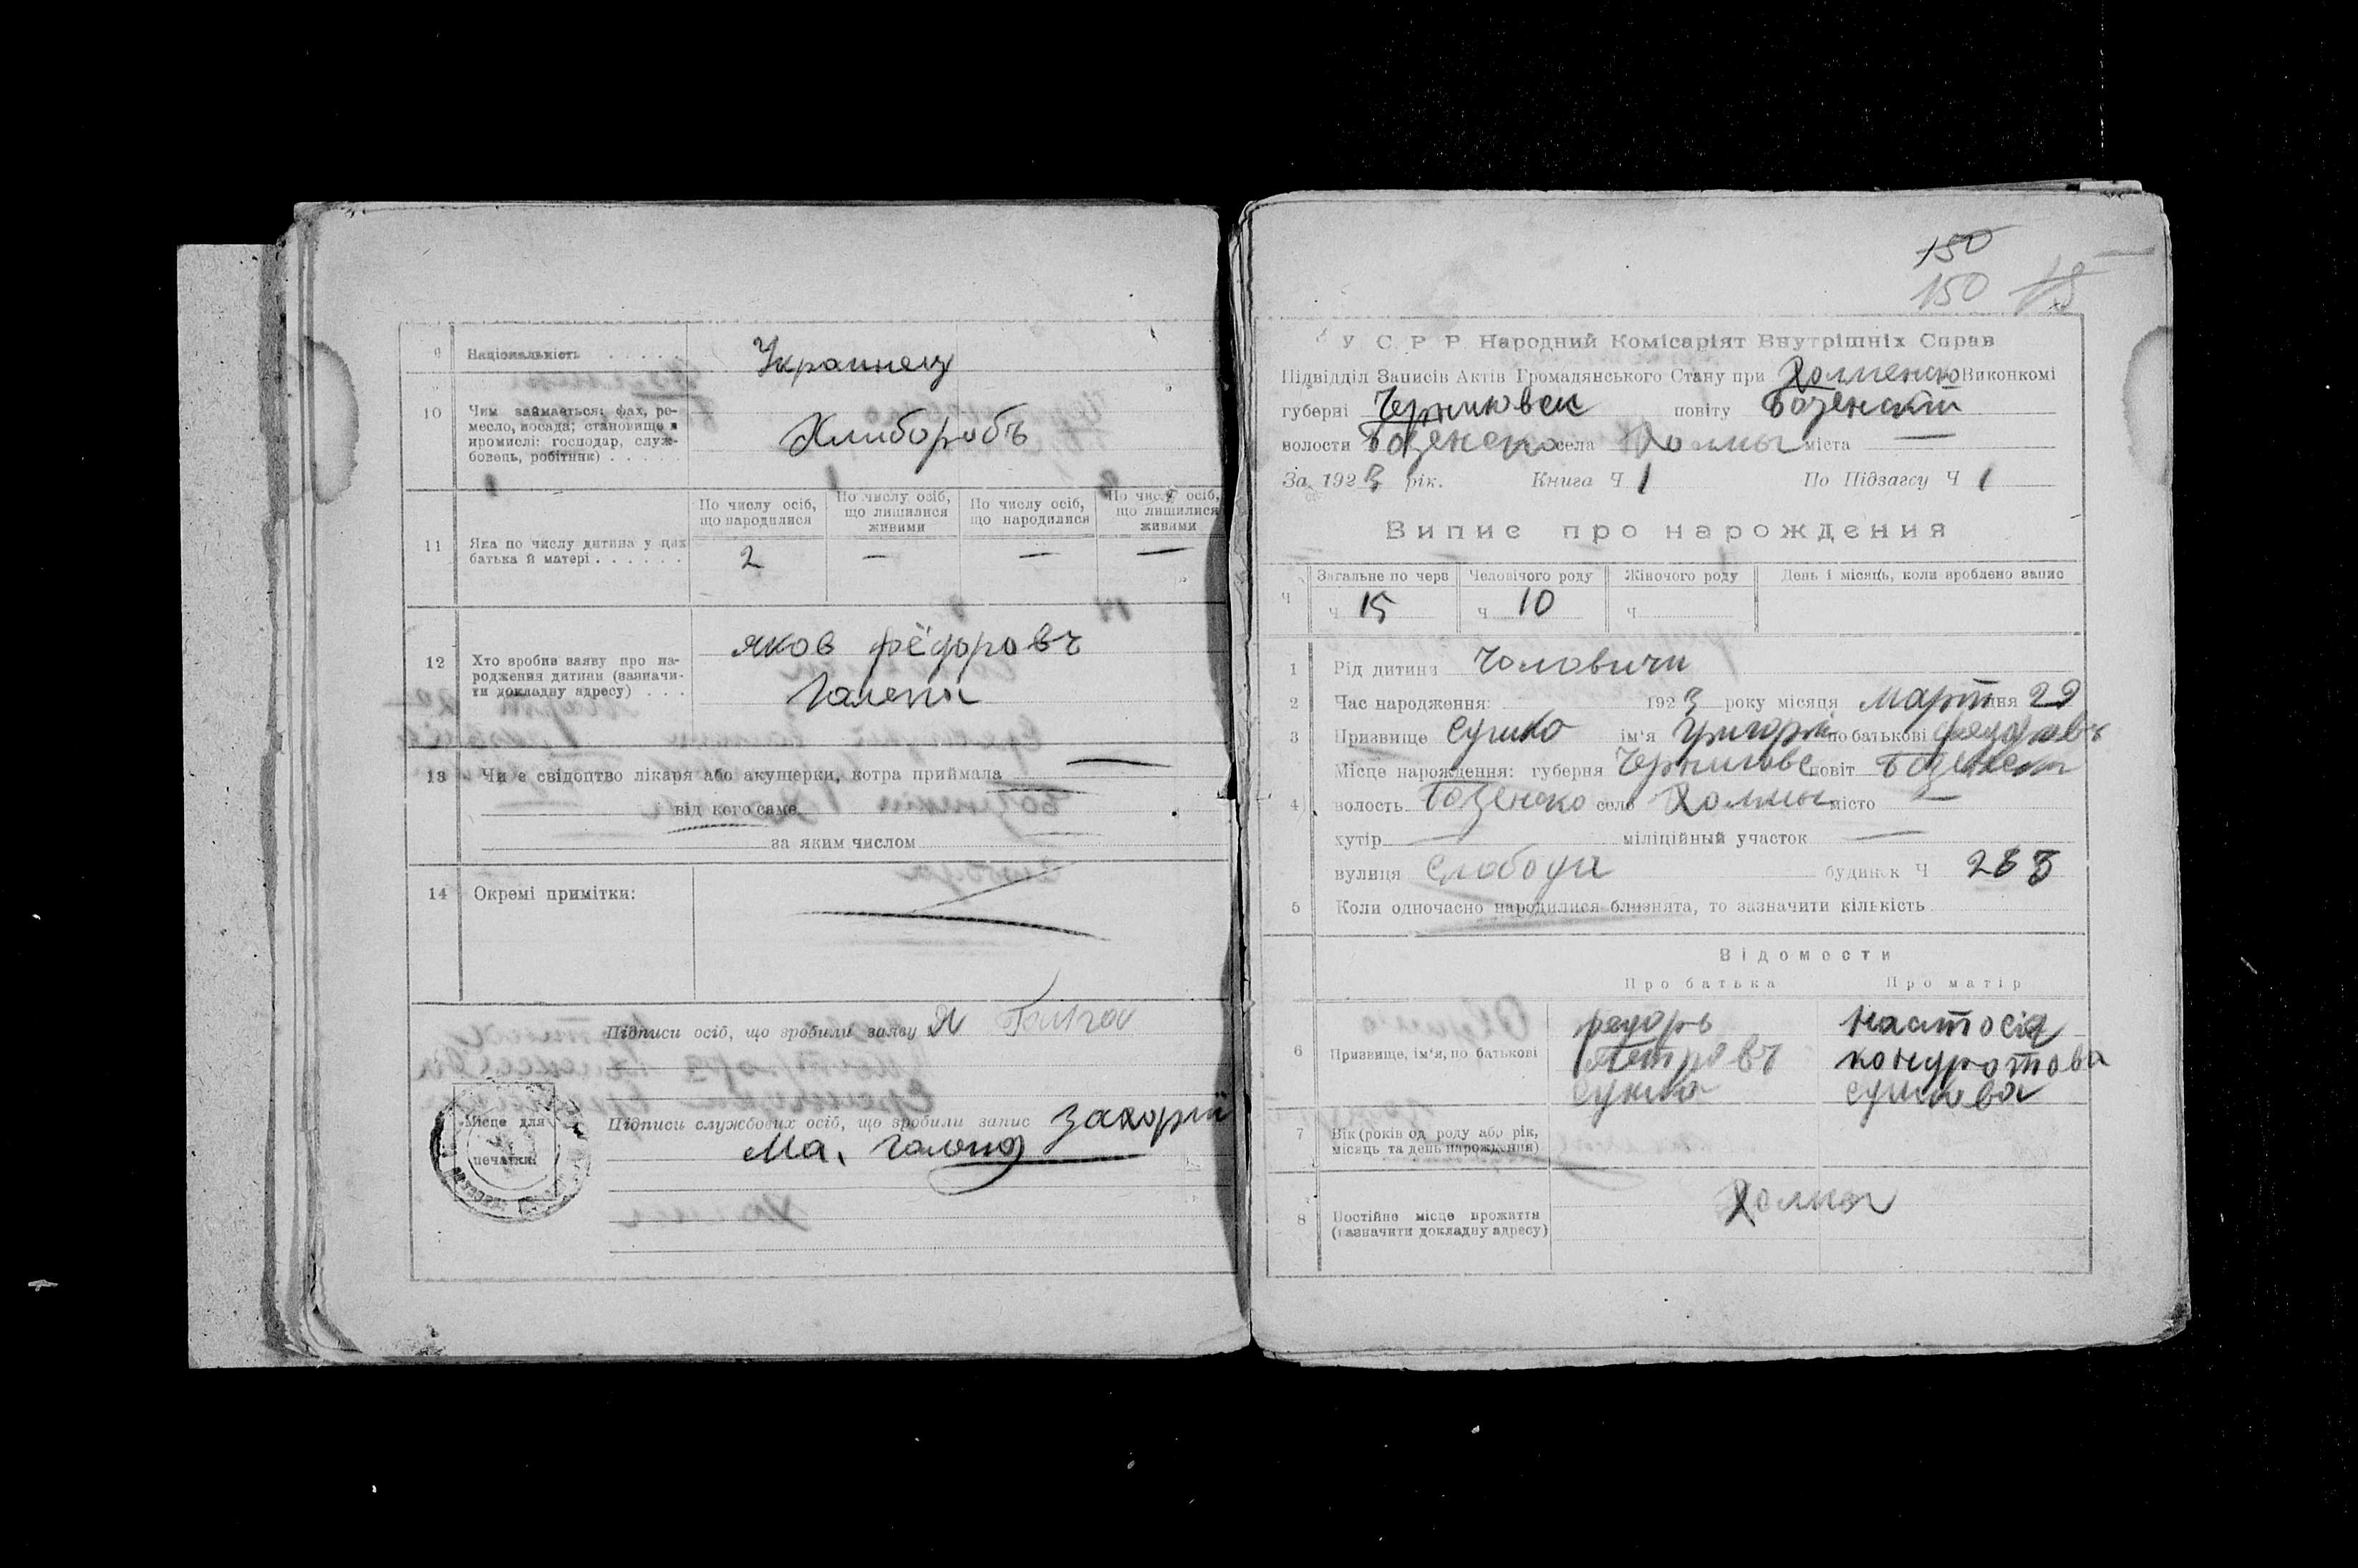 9 Національність Украинец
10 Чим займається: фах, ре-
месло, посада; становище в
промислі: господар, служ-
бовець, робітник) Хлиборобъ
По числу осіб, що народилися
По числу осіб, що лишилися живими
По числу осіб, що народилися
По числу осіб, що лишилися живими
11 Яка по числу дитина у цих
батька й матері 2 — — —
12 Хто зробив заяву про на-
родження дитини (зазначи-
ти докладну адресу)
яков фёдоровъ
13 Чи є свідоцтво лікаря або акушерки, котра приймала —
від кого саме
за яким числом
14 Окремі примітки:
Підписи осіб, що зробили заяву Я
Підписи службових осіб, що зробили запис Захорий
Місце для
печатки.
150
150
У С. Р. Р. Народний Комісаріят Внутрішніх Справ
Підвідділ Записів Актів Громадянського Стану при Виконкомі
губерні повіту
волости села Холмы міста —
За 1923 рік. Книга Ч 1 По Підзагсу Ч 1
Випис про нарождения
Загальне по черв Человічого роду Жіночого роду День і місяць, коли вроблено запис
Ч ч 15 ч 10 ч
1 Рід дитини Чоловичи
2 Час народження: 1923 року місяця март дня 29
3 Призвище Сушко ім'я Григорий по батькові
Місце нарождення: губерня повіт
4 волость село Холмы місто —
хутір — міліційный участок —
вулиця Слобода будинок Ч 283
5 Коли одночасно народилися близнята, то зазначити кількість
Відомости
Про батька Про матір
6 Призвище, ім'я, по батькові
федорь Настосія
петровъ кондротова
Сушко Сушкова
7 Вік (років од роду або рік,
місяць та день нарождення)
8 Постійне місце прожиття
(зазначити докладну адресу) Холмы